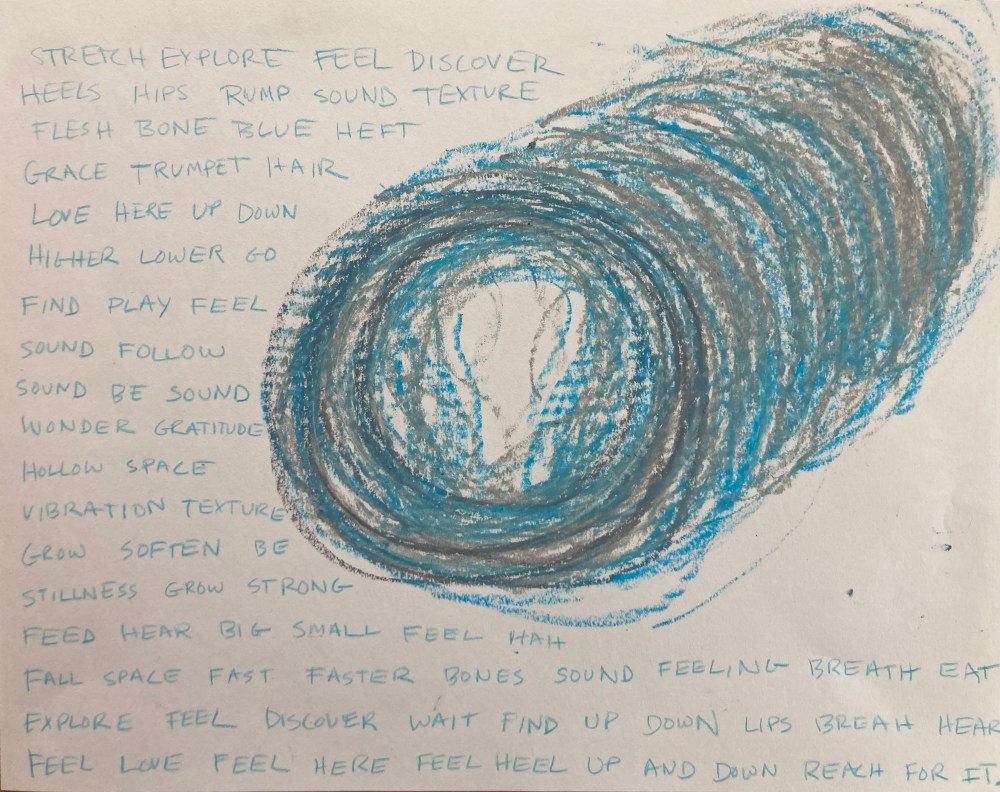 STRETCH EXPLORE FEEL DISCOVER
HEELS HIPS RUMP SOUND TEXTURE
FLESH BONE BLUE HEFT
GRACE TRUMPET HAIR
LOVE HERE UP DOWN
HIGHER LOWER GO
FIND PLAY FEEL
SOUND FOLLOW
SOUND BE SOUND
WONDER GRATITUDE
HOLLOW SPACE
VIBRATION TEXTURE
GROW SOFTEN BE
STILLNESS GROW STRONG
FEED HEAR BIG SMALL FEEL HAH
FALL SPACE FAST FASTER BONES SOUND FEELING BREATH EAT
EXPLORE FEEL DISCOVER WAIT FIND UP DOWN LIPS BREAH HEAR
FEEL LOVE FEEL HERE FEEL HEEL UP AND DOWN REACH FOR IT.